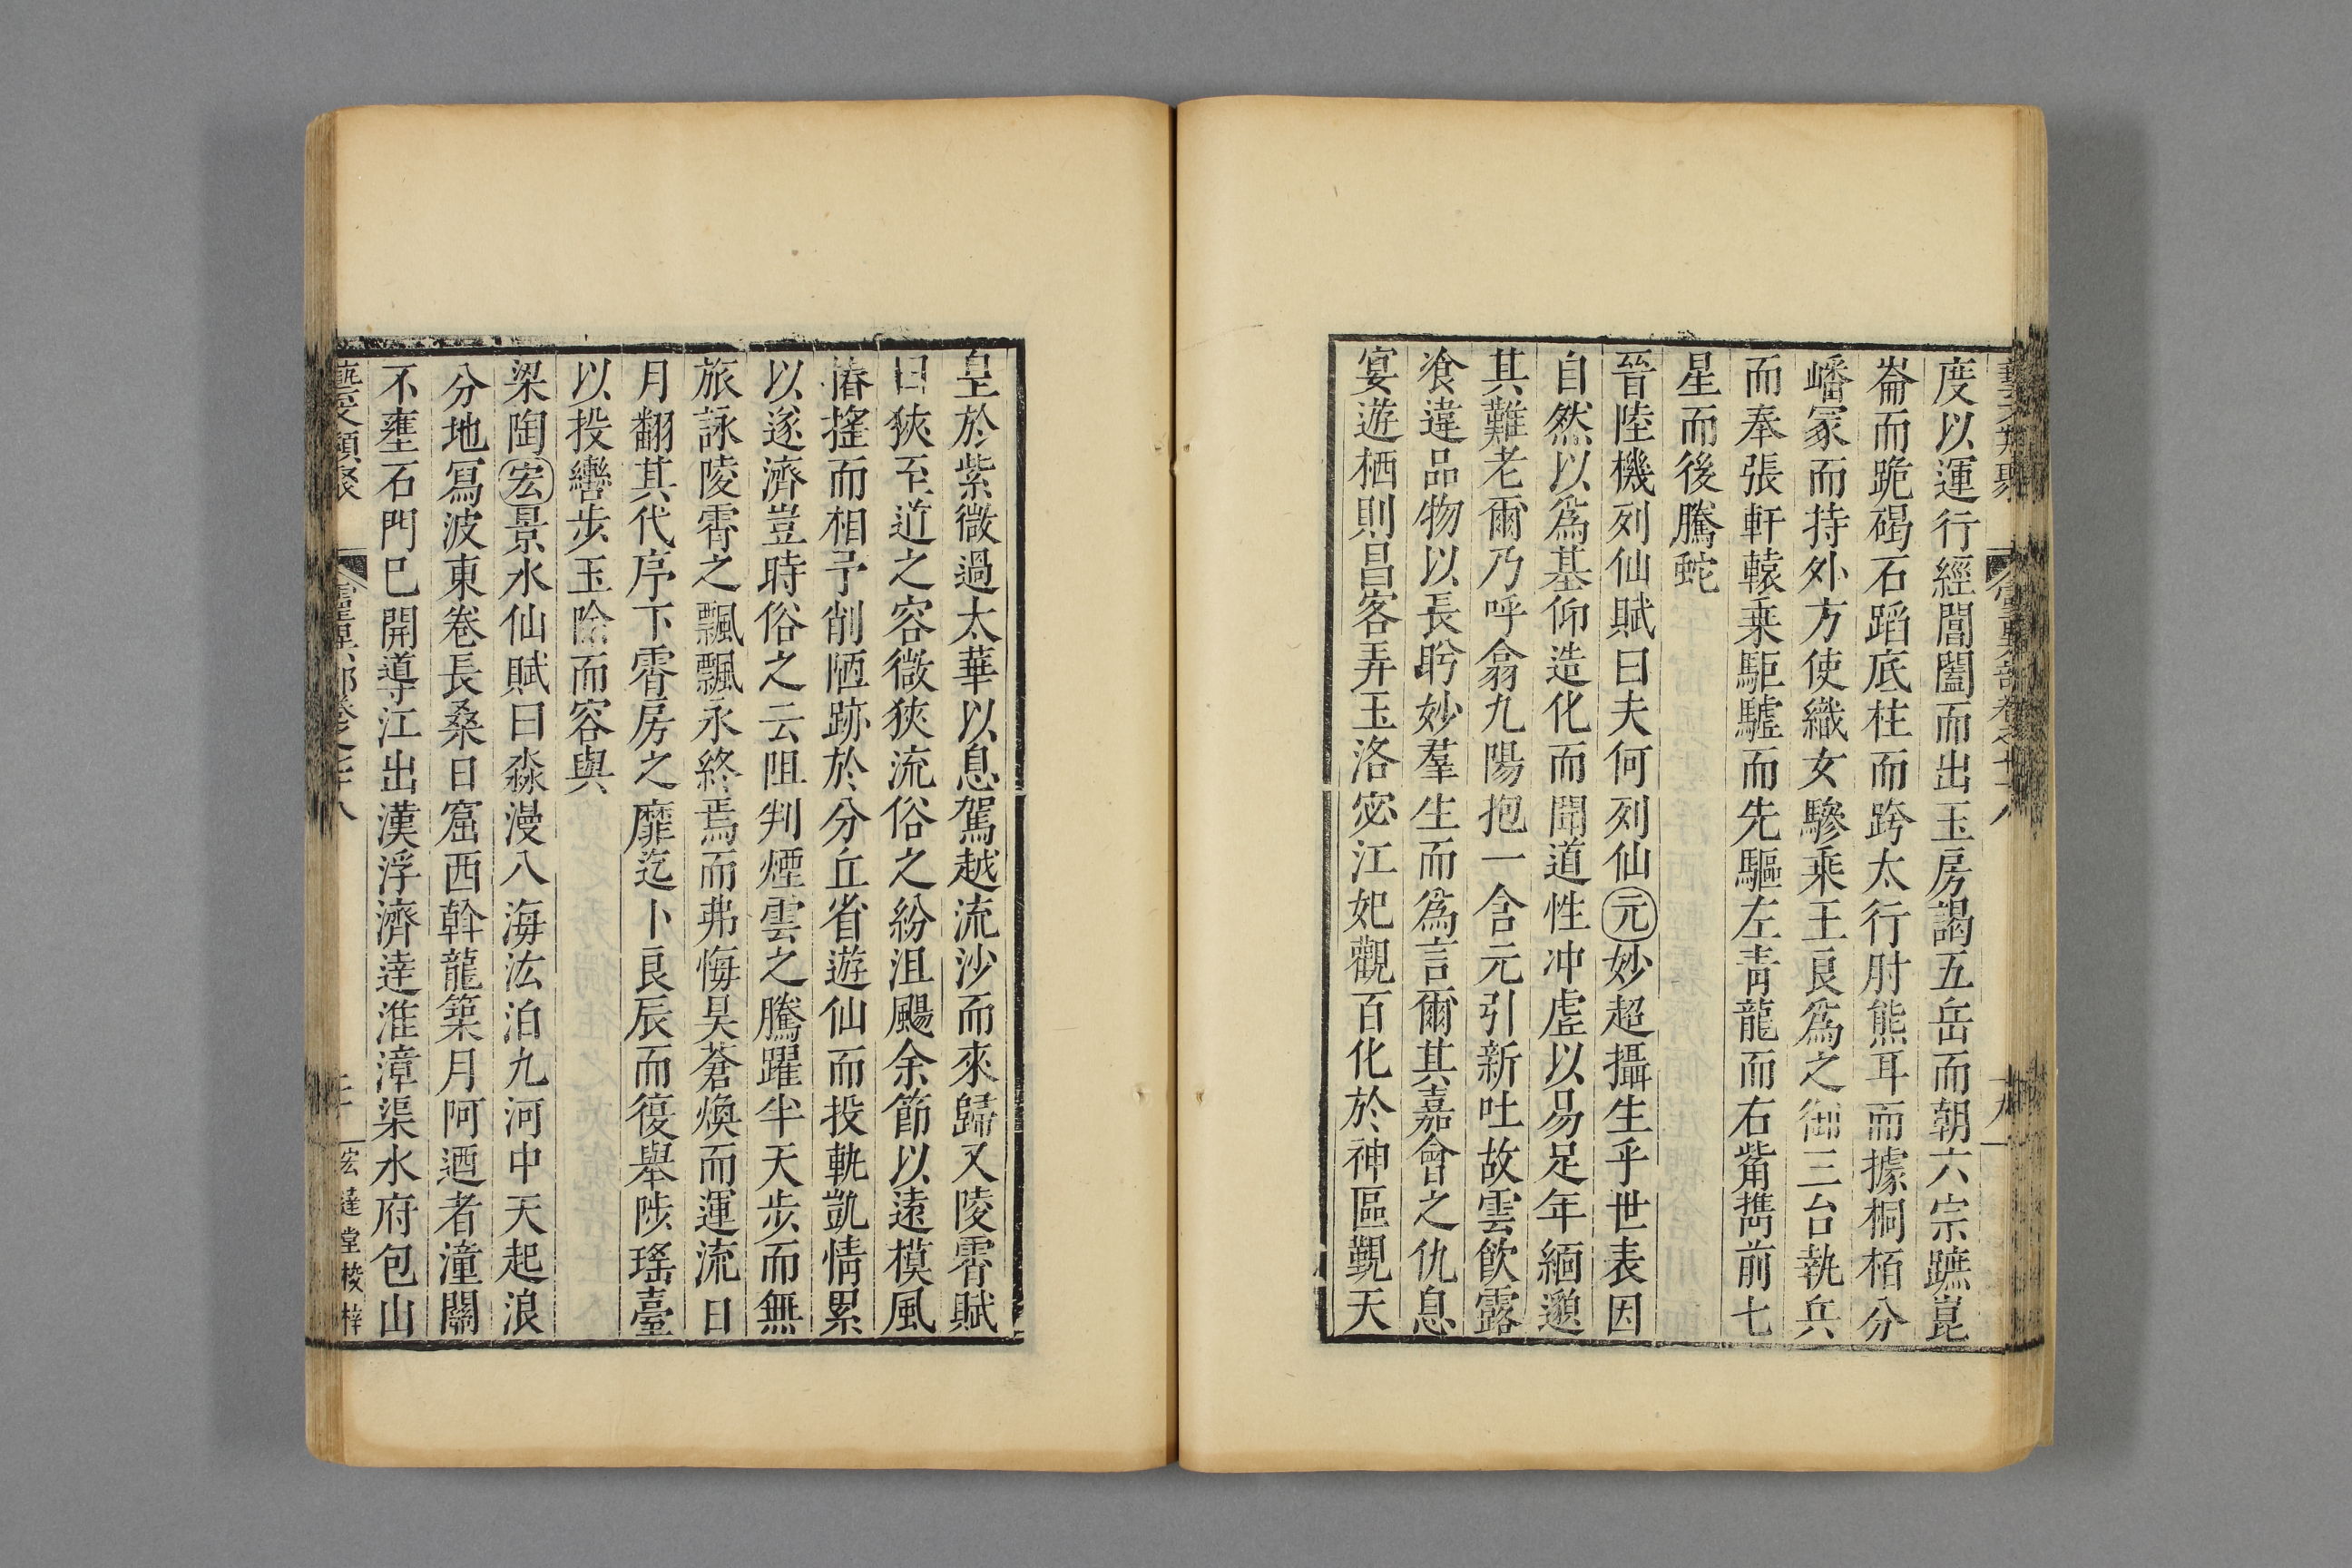 藝文類聚 靈異部卷之七十八 十九
度以運行經閶闔而出玉房謁五岳而朝六宗蹠崑
崙而跪碣石蹈底柱而跨太行肘熊耳而據桐栢分
嶓冢而持外方使織女驂乗王良為之御三台執兵
而奉張軒轅乗駏驉而先驅左青龍而右觜觿前七
星而後騰蛇
晉陸機列仙賦曰夫何列仙元妙超攝生乎世表因
自然以為基仰造化而聞道性冲虛以易足年緬邈
其難老爾乃呼翕九陽抱一含元引新吐故雲飲露
飡違品物以長盻妙羣生而為言爾其嘉會之仇息
宴遊栖則昌客弄玉洛宓江妃觀百化於神區覲天
皇於紫微過太華以息駕越流沙而來歸又陵霄賦
曰狹至道之容微狹流俗之紛沮颺余節以遠模風
揗搖而相予削陋跡於分丘省遊仙而投軌凱情累
以遂濟豈時俗之云阻判煙雲之騰躍半天步而無
旅詠陵霄之飄飄永終焉而弗悔昊蒼煥而運流日
月翻其代序下霄房之靡迄卜良辰而復舉陟瑤臺
以投轡步玉除而容與
梁陶宏景水仙賦曰淼漫八海汯泊九河中天起浪
分地冩波東卷長桑日窟西斡龍築月阿迺者潼關
不壅石門巳開導江出漢浮濟達淮漳渠水府包山
藝文類聚 靈異部卷之七十八 二十 宏達堂校梓